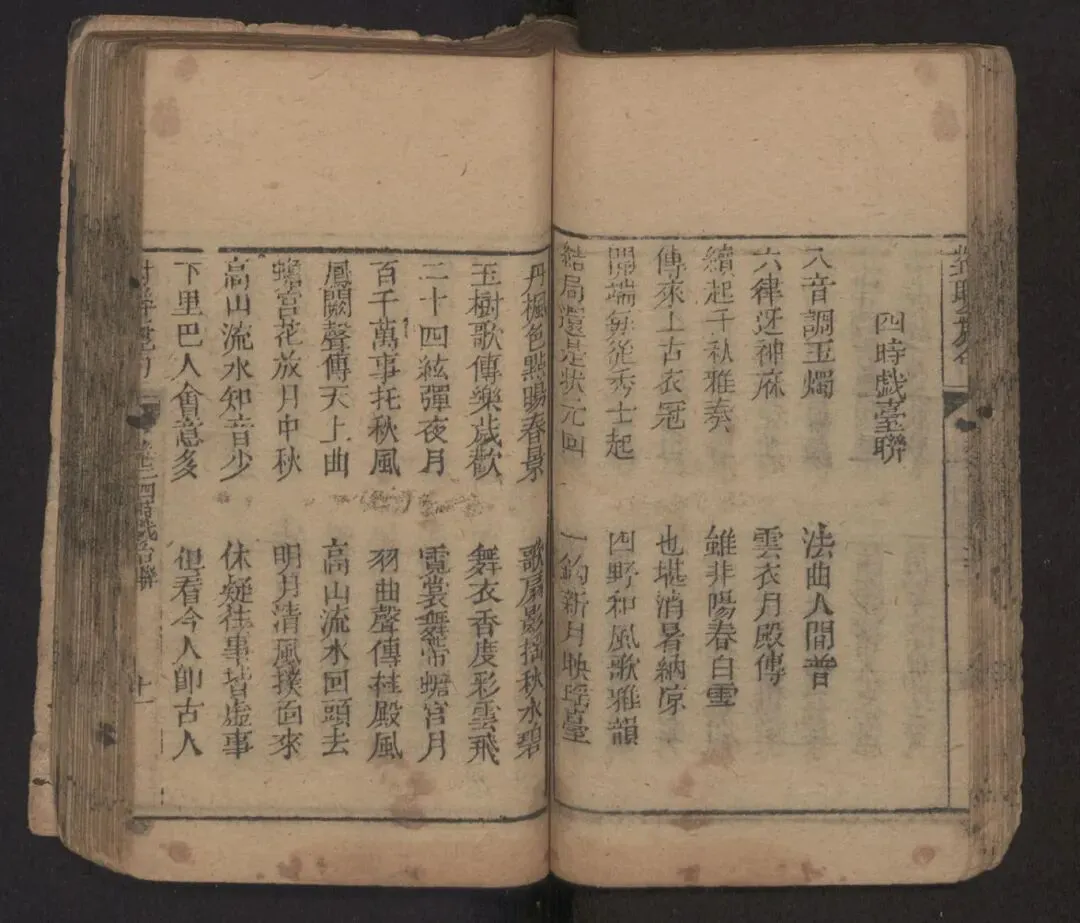 四時戯臺聯
八音調玉燭 法曲人間普
六律迓神庥 雲衣月殿傳
續起千秋雅奏 雖非陽春白雪
傳來上古衣冠 也堪消暑納凉
開端每從秀士起 四野和風歌雅韻
結局還是状元回 一鈎新月映瑶臺
丹楓色點陽春景 歌扇影揺秋水碧
玉樹歌傳樂歲歡 舞衣香度彩雲飛
二十四絃彈夜月 霓裳舞常蟾宫月
百千萬事托秋風 羽曲聲傳桂殿風
鳳闕聲傳天上曲 高山流水回頭去
蟾宫花放月中秋 明月清風撲面來
高山流水知音少 休疑往事皆虚事
下里巴人會意多 但看今人即古人
四時戯台聯 十一